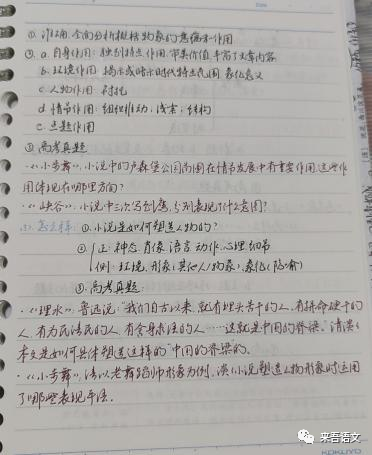 ①准确、全面分析概括物象的意蕴和作用
② a.自身作用：独到特点作用.审美价值.丰富了文章内容
b.环境作用 揭示或暗示时代特点氛围 象征意义
c.人物作用：衬托
d.情节作用：组织推动；线索；结构
e.点题作用
③高考真题
·《小步舞》，小说中的卢森堡公园苗圃在情节发展中有重要作用，这些作用体现在哪里方面？
·《峡谷》，小说中三次写到鹰，分别表现了什么意图？
(3).怎么样 ①.小说是如何塑造人物的？
② 正：神态.肖像.语言.动作.心理.细节
侧：环境、形象；其他人/物象；象征(隐喻)
③.高考真题：
·《理水》，鲁迅说："我们自古以来，就有埋头苦干的人，有拼命硬干的
人，有为民请民的人，有舍身求法的人……这就是中国的脊梁。"请谈谈
本文是如何具体塑造这样的"中国的脊梁"的。
·《小步舞》，请以老舞蹈师形象为例，谈小说塑造人物形象时运用
了哪些表现手法.
来吾语文
KOKUYO